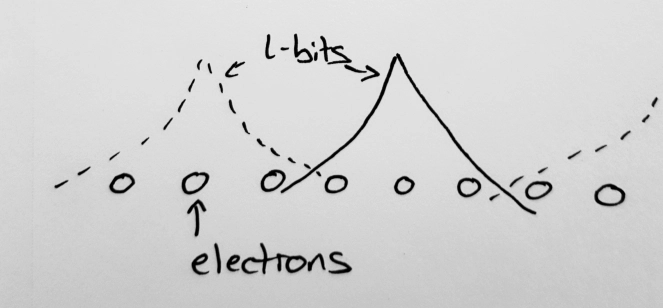 l-bits
electrons